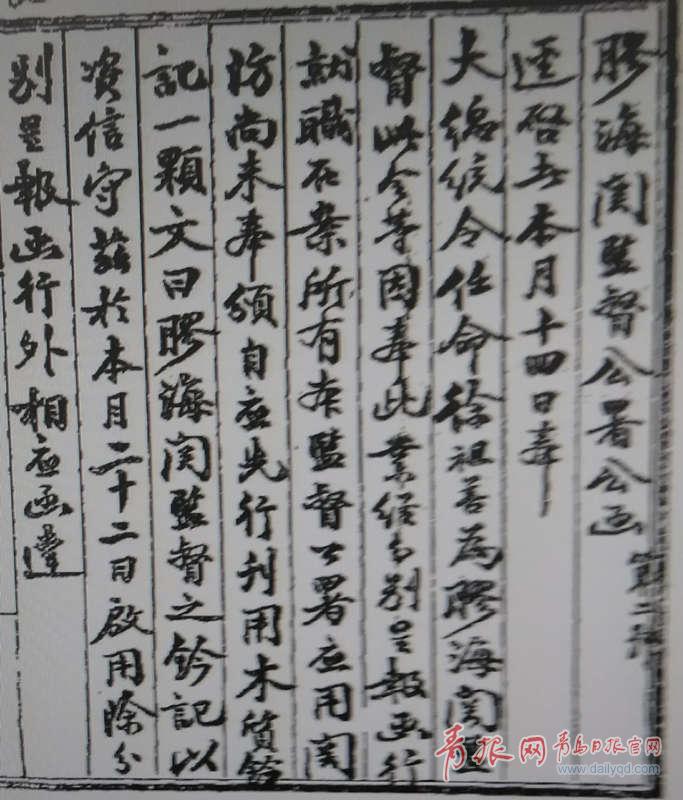 膠海関監督公署公函 第二號
逕啓者本月十四日奉
大總統令任命徐祖善為膠海関監
督此令等因奉此業經分别呈報函行
就職在案所有本監督公署应用関
防尚未奉頒自应先行刊用木質鈐
記一顆文曰膠海関監督之鈐記以
資信守茲於本月二十二日啟用除分
别呈報函行外相应函達
青报网 青岛日报官网
www.dailyqd.com